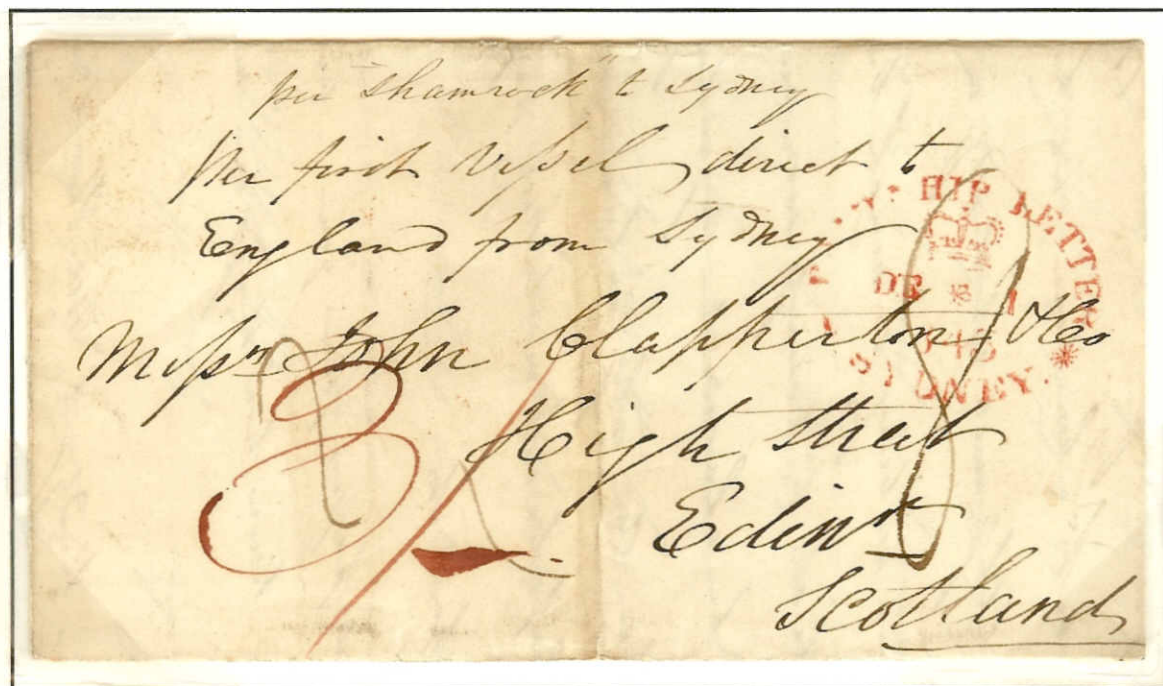 per "Shamrock" to Sydney
Per first Vessel direct to
England from Sydney
Messrs John Clapperton & Co
High Street
Edinr
Scotland
SHIP LETTER
DE 1
SYDNEY
3/-
8